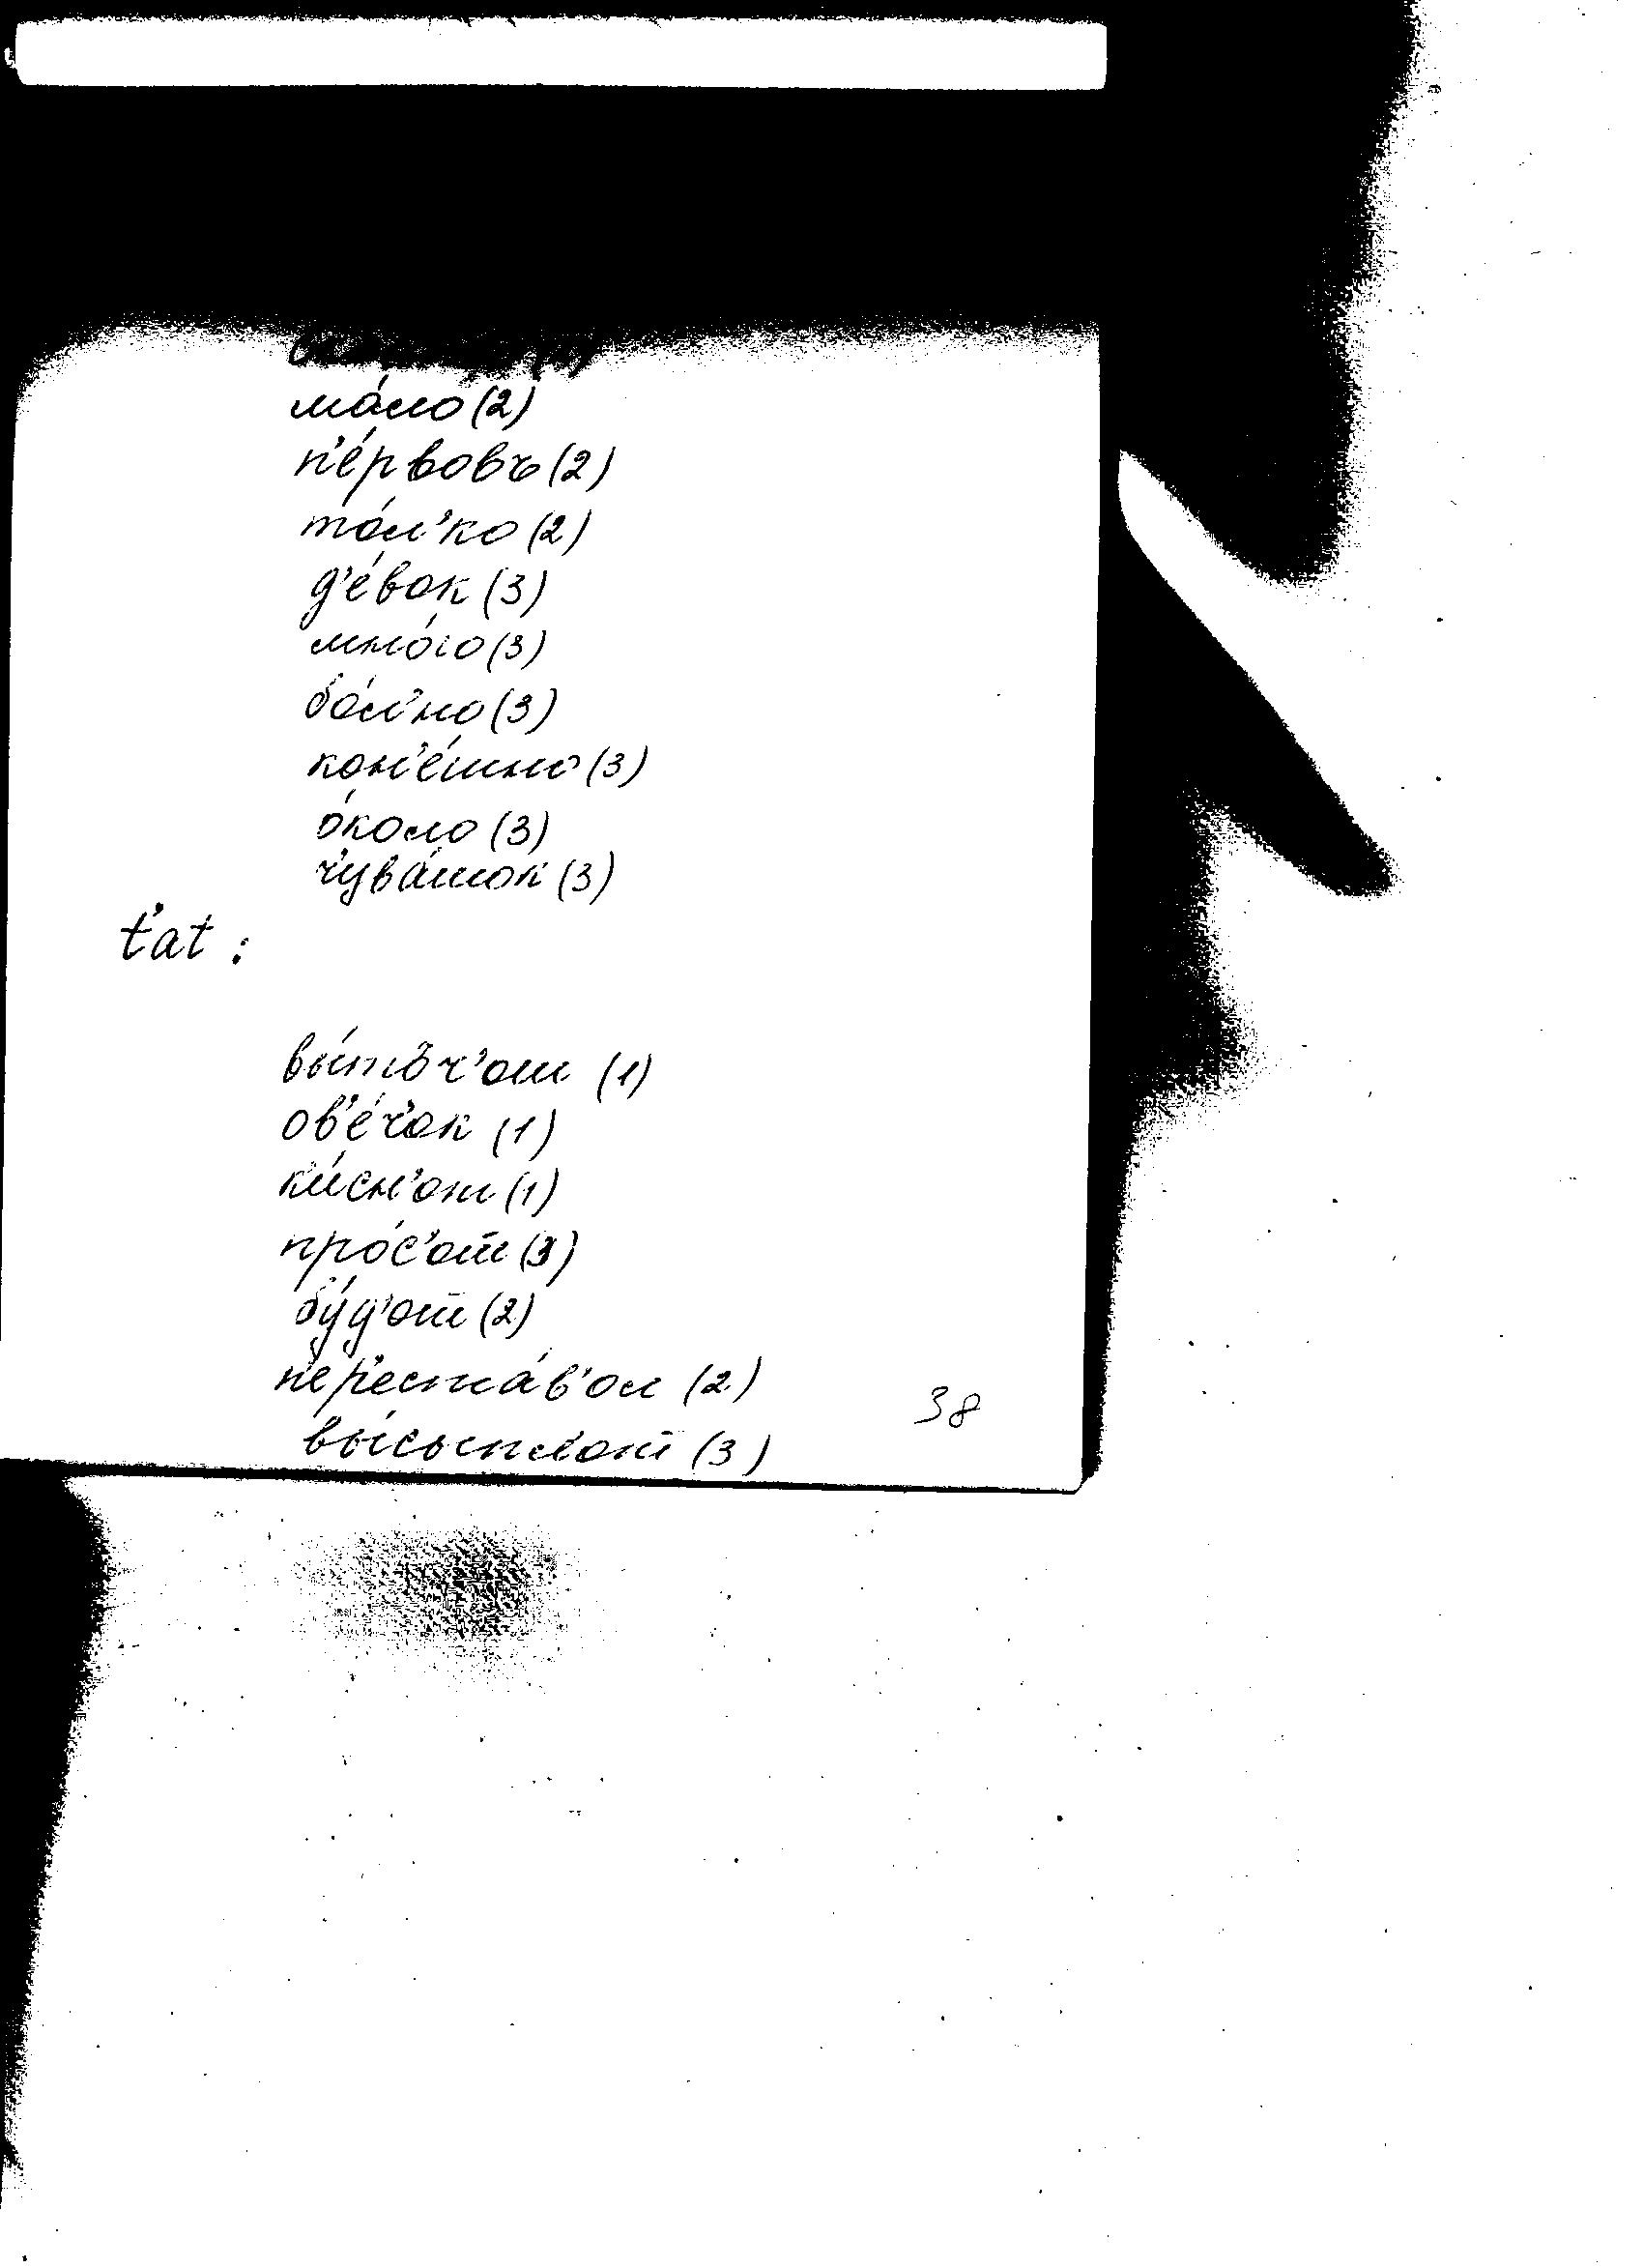 ма́ло (2)
п'е́рвовъ (2)
то́л'ко (2)
д'е́вок (3)
мно́го (3)
бо́л'но (3)
кон'е́шно (3)
о́коло (3)
ч'ува́шок (3)
t'at :
ов'е́ч'ок (1)
к'и́сн'от (1)
про́с'от (3)
бу́д'от (2)
п'ер'еста́в'ол (2)
вы́сыпл'от (3)
38